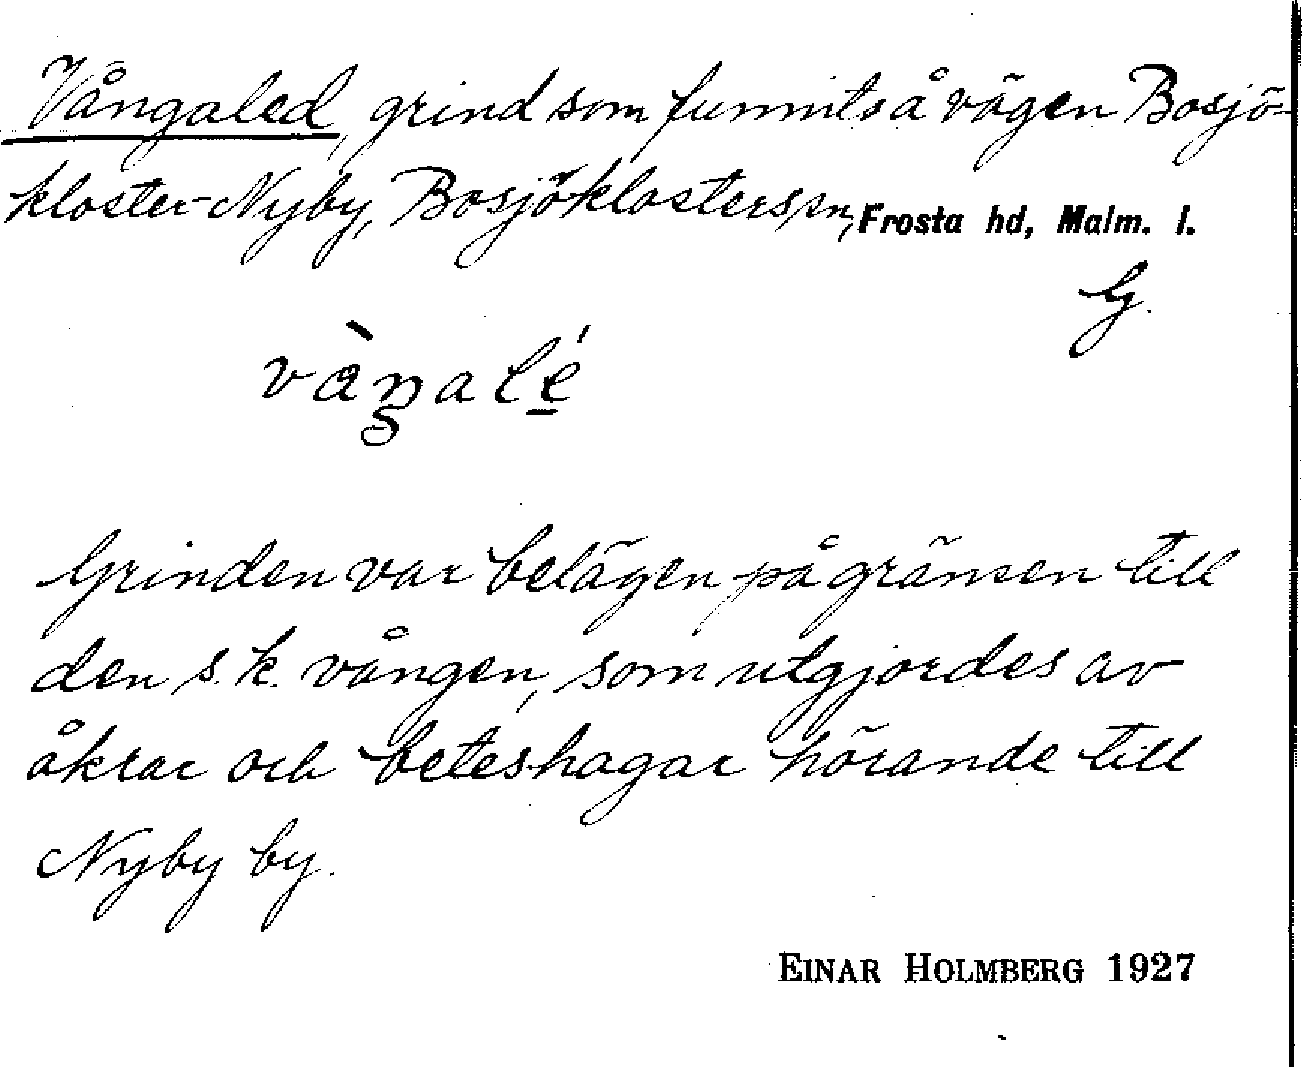 Vångaled, grind som funnits å vägen Bosjö-
kloster-Nyby, Bosjöklosters sn, Frosta hd, Malm. l.
G.
Grinden var belägen på gränsen till
den s.k. vången, som utgjordes av
åkrar och beteshagar hörande till
Nyby by.
EINAR HOLMBERG 1927